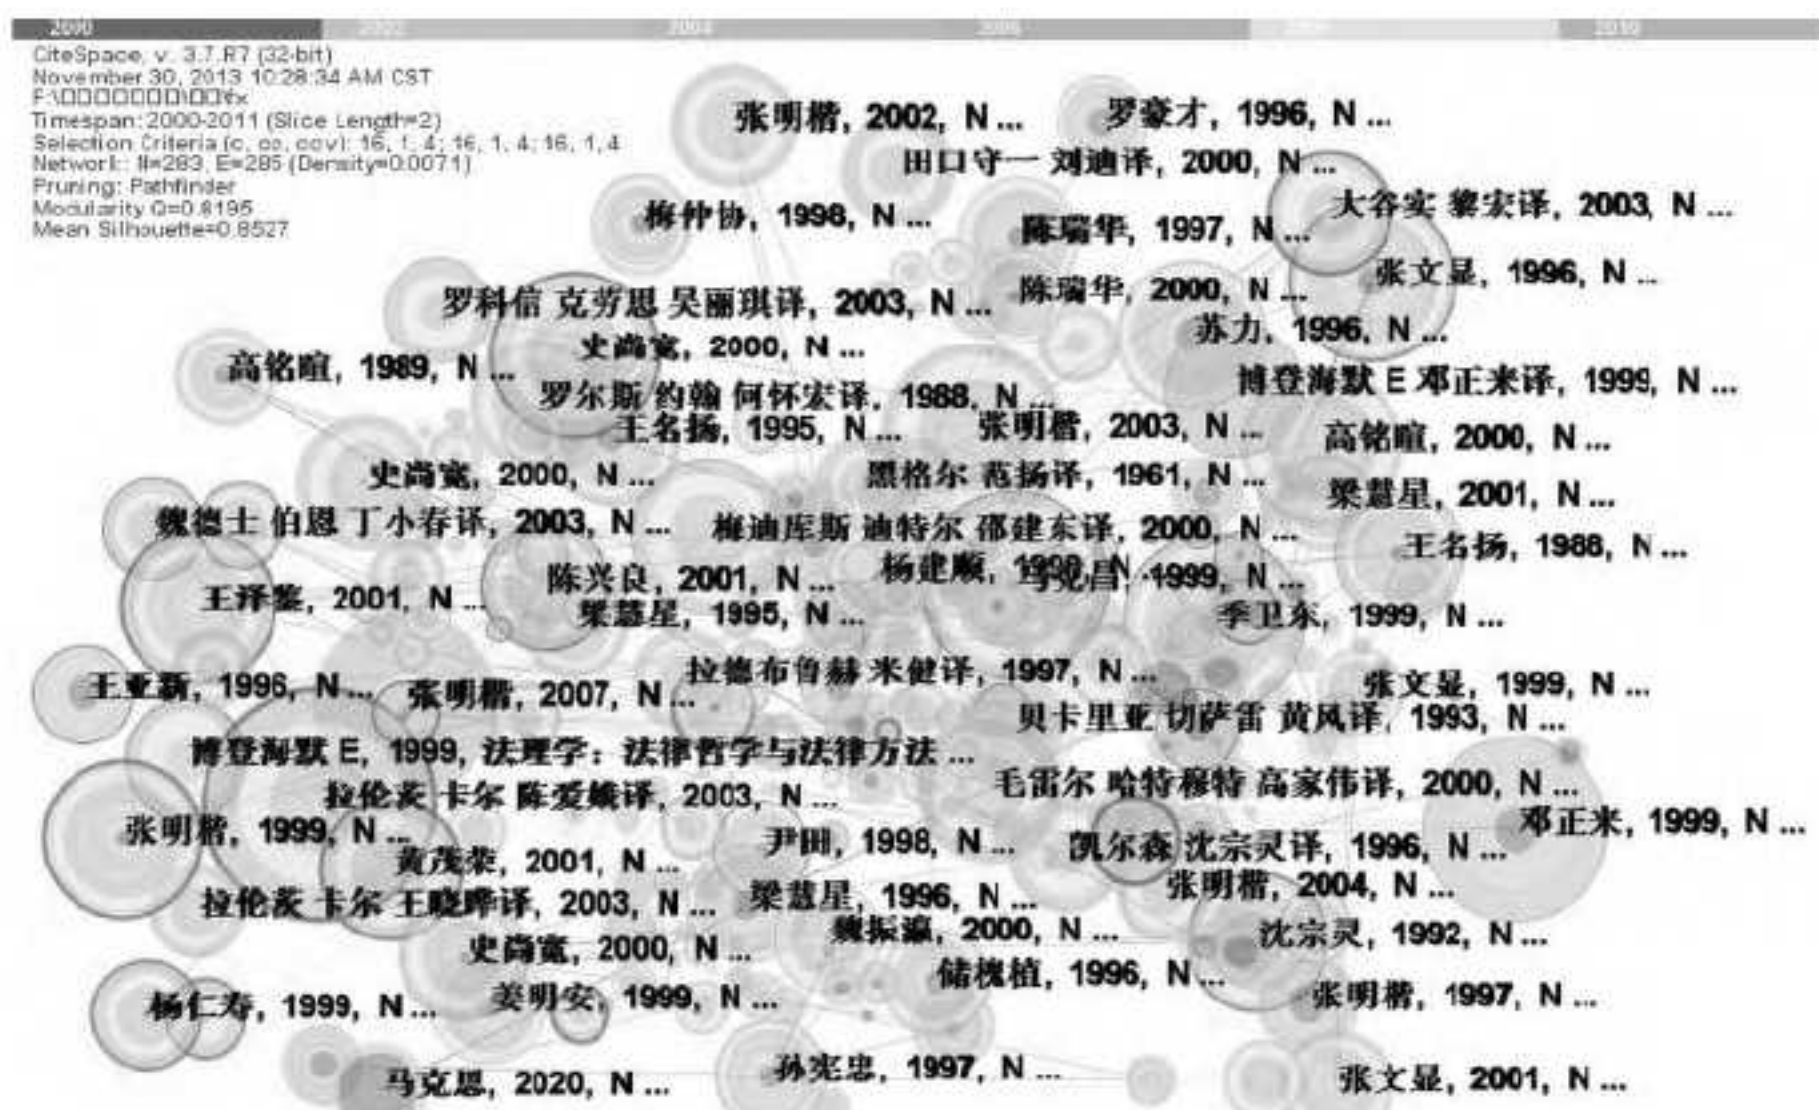 2000 2002 2004 2006 2010
CiteSpace, v. 3.7.R7 (32-bit)
November 30, 2013 10:28:34 AM CST
Timespan: 2000-2011 (Slice Length=2)
Selection Criteria (c, cc, ccv): 16, 1, 4; 16, 1, 4; 16, 1, 4
Network: N=283, E=285 (Density=0.0071)
Pruning: Pathfinder
Modularity Q=0.8195
Mean Silhouette=0.8527
张明楷, 2002, N ...
罗豪才, 1996, N ...
田口守一 刘迪译, 2000, N ...
大谷实 黎宏译, 2003, N ...
梅仲协, 1998, N ...
陈瑞华, 1997, N ...
张文显, 1996, N ...
陈瑞华, 2000, N ...
罗科信 克劳思 吴丽琪译, 2003, N ...
苏力, 1996, N ...
史尚宽, 2000, N ...
高铭暄, 1989, N ...
博登海默 E 邓正来译, 1999, N ...
罗尔斯 约翰 何怀宏译, 1988, N ...
王名扬, 1995, N ...
张明楷, 2003, N ...
高铭暄, 2000, N ...
史尚宽, 2000, N ...
黑格尔 范扬译, 1961, N ...
梁慧星, 2001, N ...
魏德士 伯恩 丁小春译, 2003, N ...
梅迪库斯 迪特尔 邵建东译, 2000, N ...
王名扬, 1988, N ...
陈兴良, 2001, N ...
杨建顺, 1998, N
马克昌, 1999, N ...
王泽鉴, 2001, N ...
梁慧星, 1995, N ...
季卫东, 1999, N ...
拉德布鲁赫 米健译, 1997, N ...
王亚新, 1996, N ...
张明楷, 2007, N ...
张文显, 1999, N ...
贝卡里亚 切萨雷 黄风译, 1993, N ...
博登海默 E, 1999, 法理学: 法律哲学与法律方法 ...
毛雷尔 哈特穆特 高家伟译, 2000, N ...
拉伦茨 卡尔 陈爱娥译, 2003, N ...
邓正来, 1999, N ...
张明楷, 1999, N ...
尹田, 1998, N ...
凯尔森 沈宗灵译, 1996, N ...
黄茂荣, 2001, N ...
张明楷, 2004, N ...
拉伦茨 卡尔 王晓晔译, 2003, N ...
梁慧星, 1996, N ...
魏振瀛, 2000, N ...
沈宗灵, 1992, N ...
史尚宽, 2000, N ...
储槐植, 1996, N ...
杨仁寿, 1999, N ...
姜明安, 1999, N ...
张明楷, 1997, N ...
马克思, 2020, N ...
孙宪忠, 1997, N ...
张文显, 2001, N ...